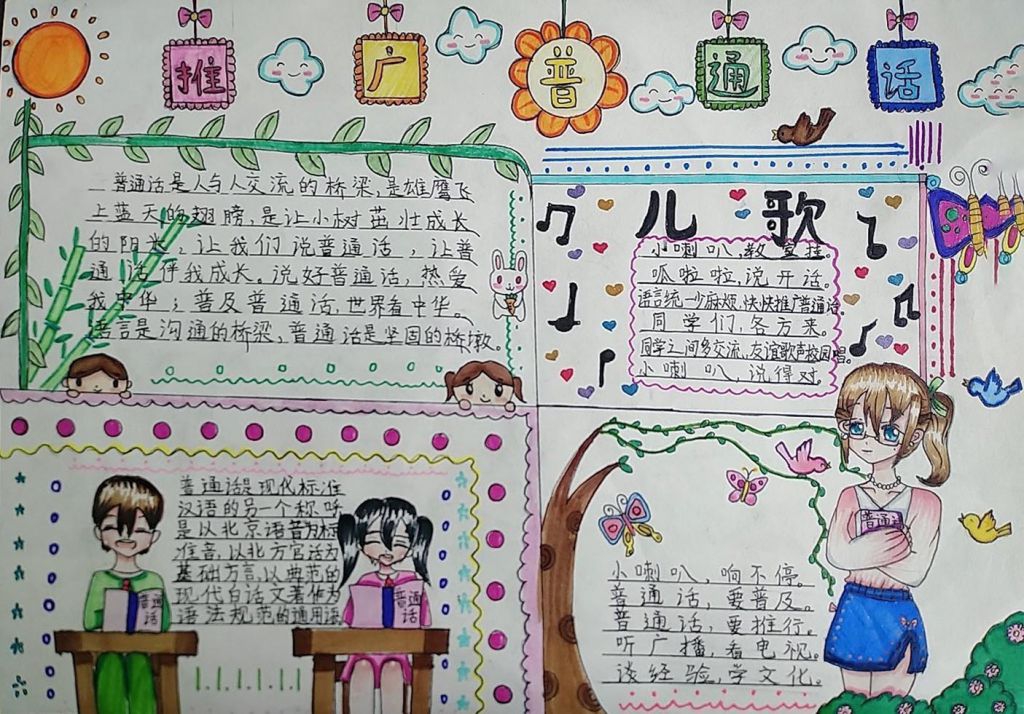 推广普通话
普通话是人与人交流的桥梁,是雄鹰飞
上蓝天的翅膀,是让小树茁壮成长
的阳光,让我们说普通话,让普
通话伴我成长。说好普通话,热爱
我中华;普及普通话,世界看中华。
语言是沟通的桥梁,普通话是坚固的桥墩。
儿歌
小喇叭,教室挂。
呱啦啦,说开话。
语言统一少麻烦,快快推广普通话。
同学们,各方来。
同学之间多交流,友谊歌声校园唱。
小喇叭,说得对。
普通话是现代标准
汉语的另一个称呼
是以北京语音为标
准音,以北方官话为
基础方言,以典范的
现代白话文著作为
语法规范的通用语
普通话
普通话
小喇叭,响不停。
普通话,要普及。
普通话,要推行。
听广播,看电视。
谈经验,学文化。
普通话